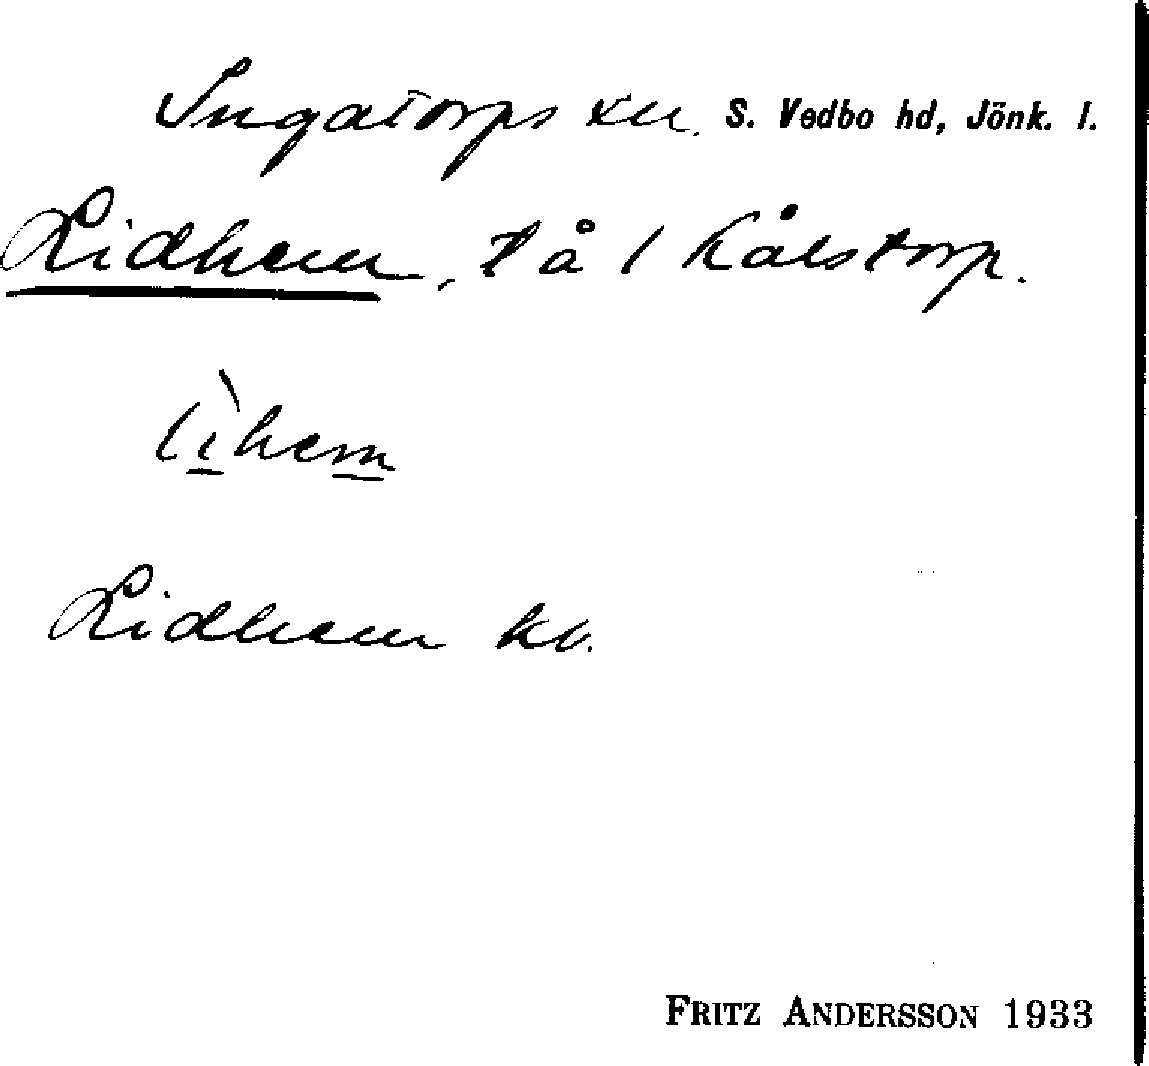 Ingatorps sn. S. Vedbo hd, Jönk. l.
Lidhem, t å / Kålstorp.
lìhem
Lidhem kv.
FRITZ ANDERSSON 1933